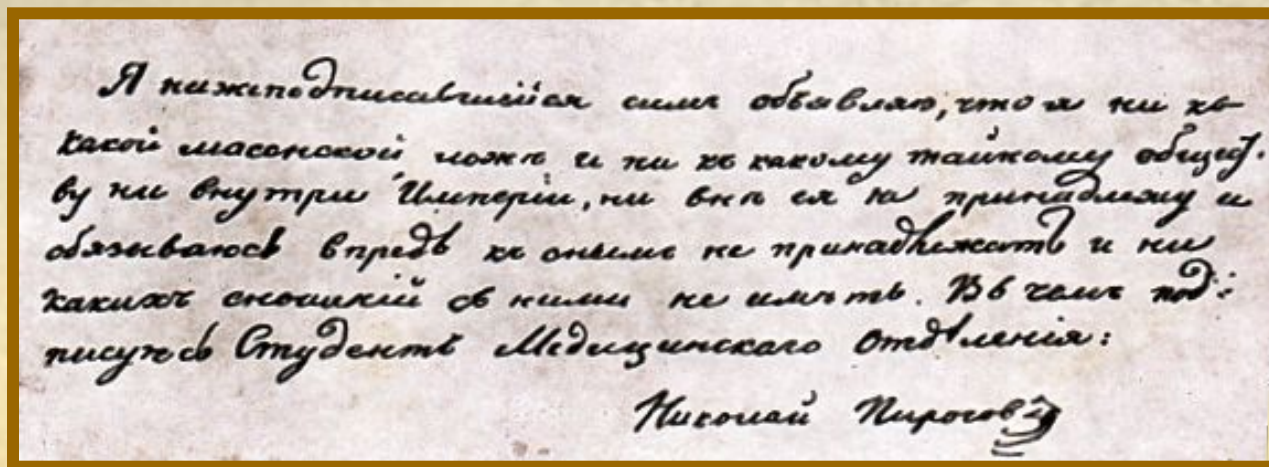 Я нижеподписавшійся симъ объявляю, что я ни къ
какой масонской ложѣ и ни къ какому тайному общест-
ву ни внутри Имперіи, ни внѣ ея не принадлежу и
обязываюсь впредь къ онымъ не принадлежать и ни
какихъ сношеній съ ними не имѣть. Въ чемъ под-
писуюсь Студентъ Медицинскаго Отдѣленія:
Николай Пироговъ